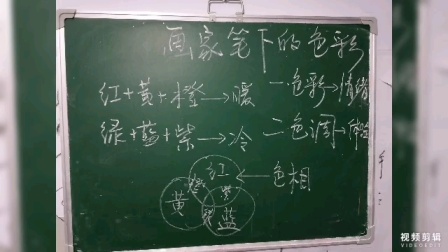 画家笔下的色彩
红+黄+橙→暖
一色彩→情绪
绿+蓝+紫→冷
二色调
红
橙 紫
黄 绿 蓝
←色相
视频剪辑